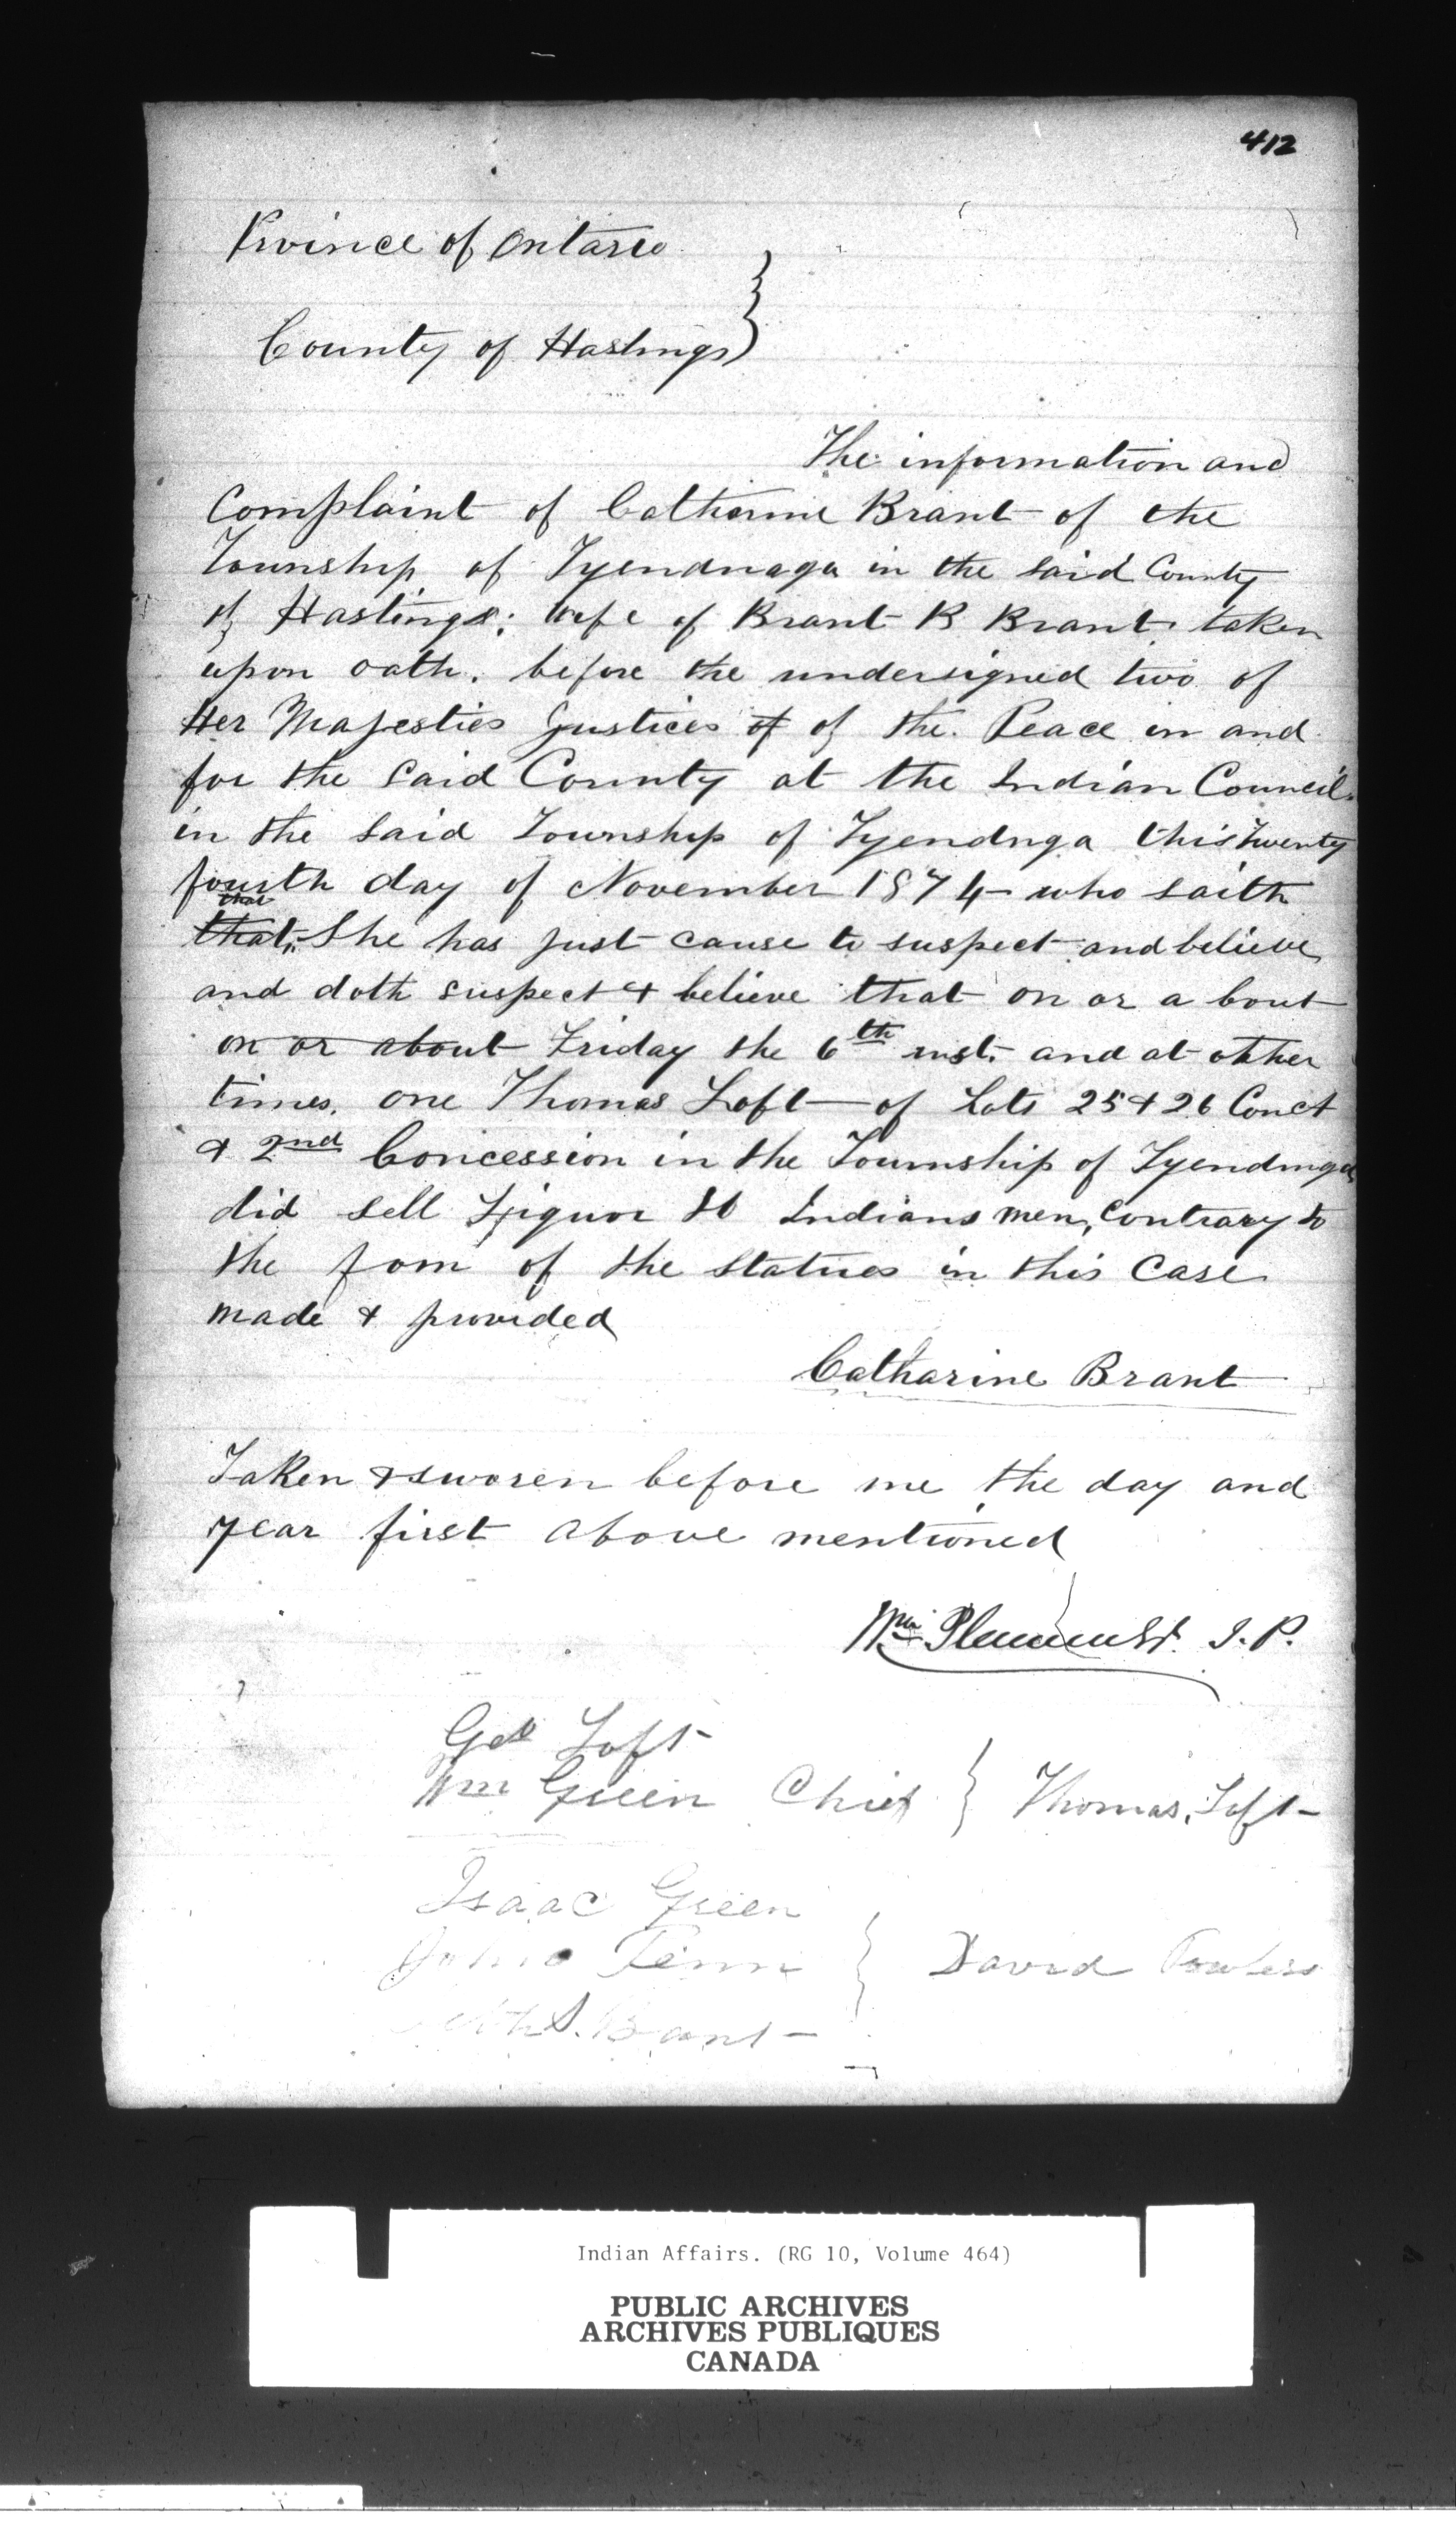 412
Province of Ontario
County of Hastings }
The information and
Complaint of Catherine Brant of the
Township of Tyendnaga in the said County
of Hastings; wife of Brant B Brant taken
upon oath. before the undersigned two of
Her Majesties Justices of of the Peace in and
for the said County at the Indian Council
in the said Township of Tyendnga this Twenty
fourth day of November 1874 who saith
that
that She has just cause to suspect and believe
and doth suspect & believe that on or a bout
on or about Friday the 6th inst. and at other
times. one Thomas Loft of Lots 25 & 26 Conct
& 2nd Concession in the Township of Tyendinga
did sell Liquor to Indians men, Contrary to
the fom of the Statues in this Case
made & provided
Catharine Brant
Taken & sworen before me the day and
year first above mentioned
Wm J. P.
Geo Loft
Wm Green Chief } Thomas Loft
Isaac Green
John Penn } David Powless
S. Brant
Indian Affairs. (RG 10, Volume 464)
PUBLIC ARCHIVES
ARCHIVES PUBLIQUES
CANADA